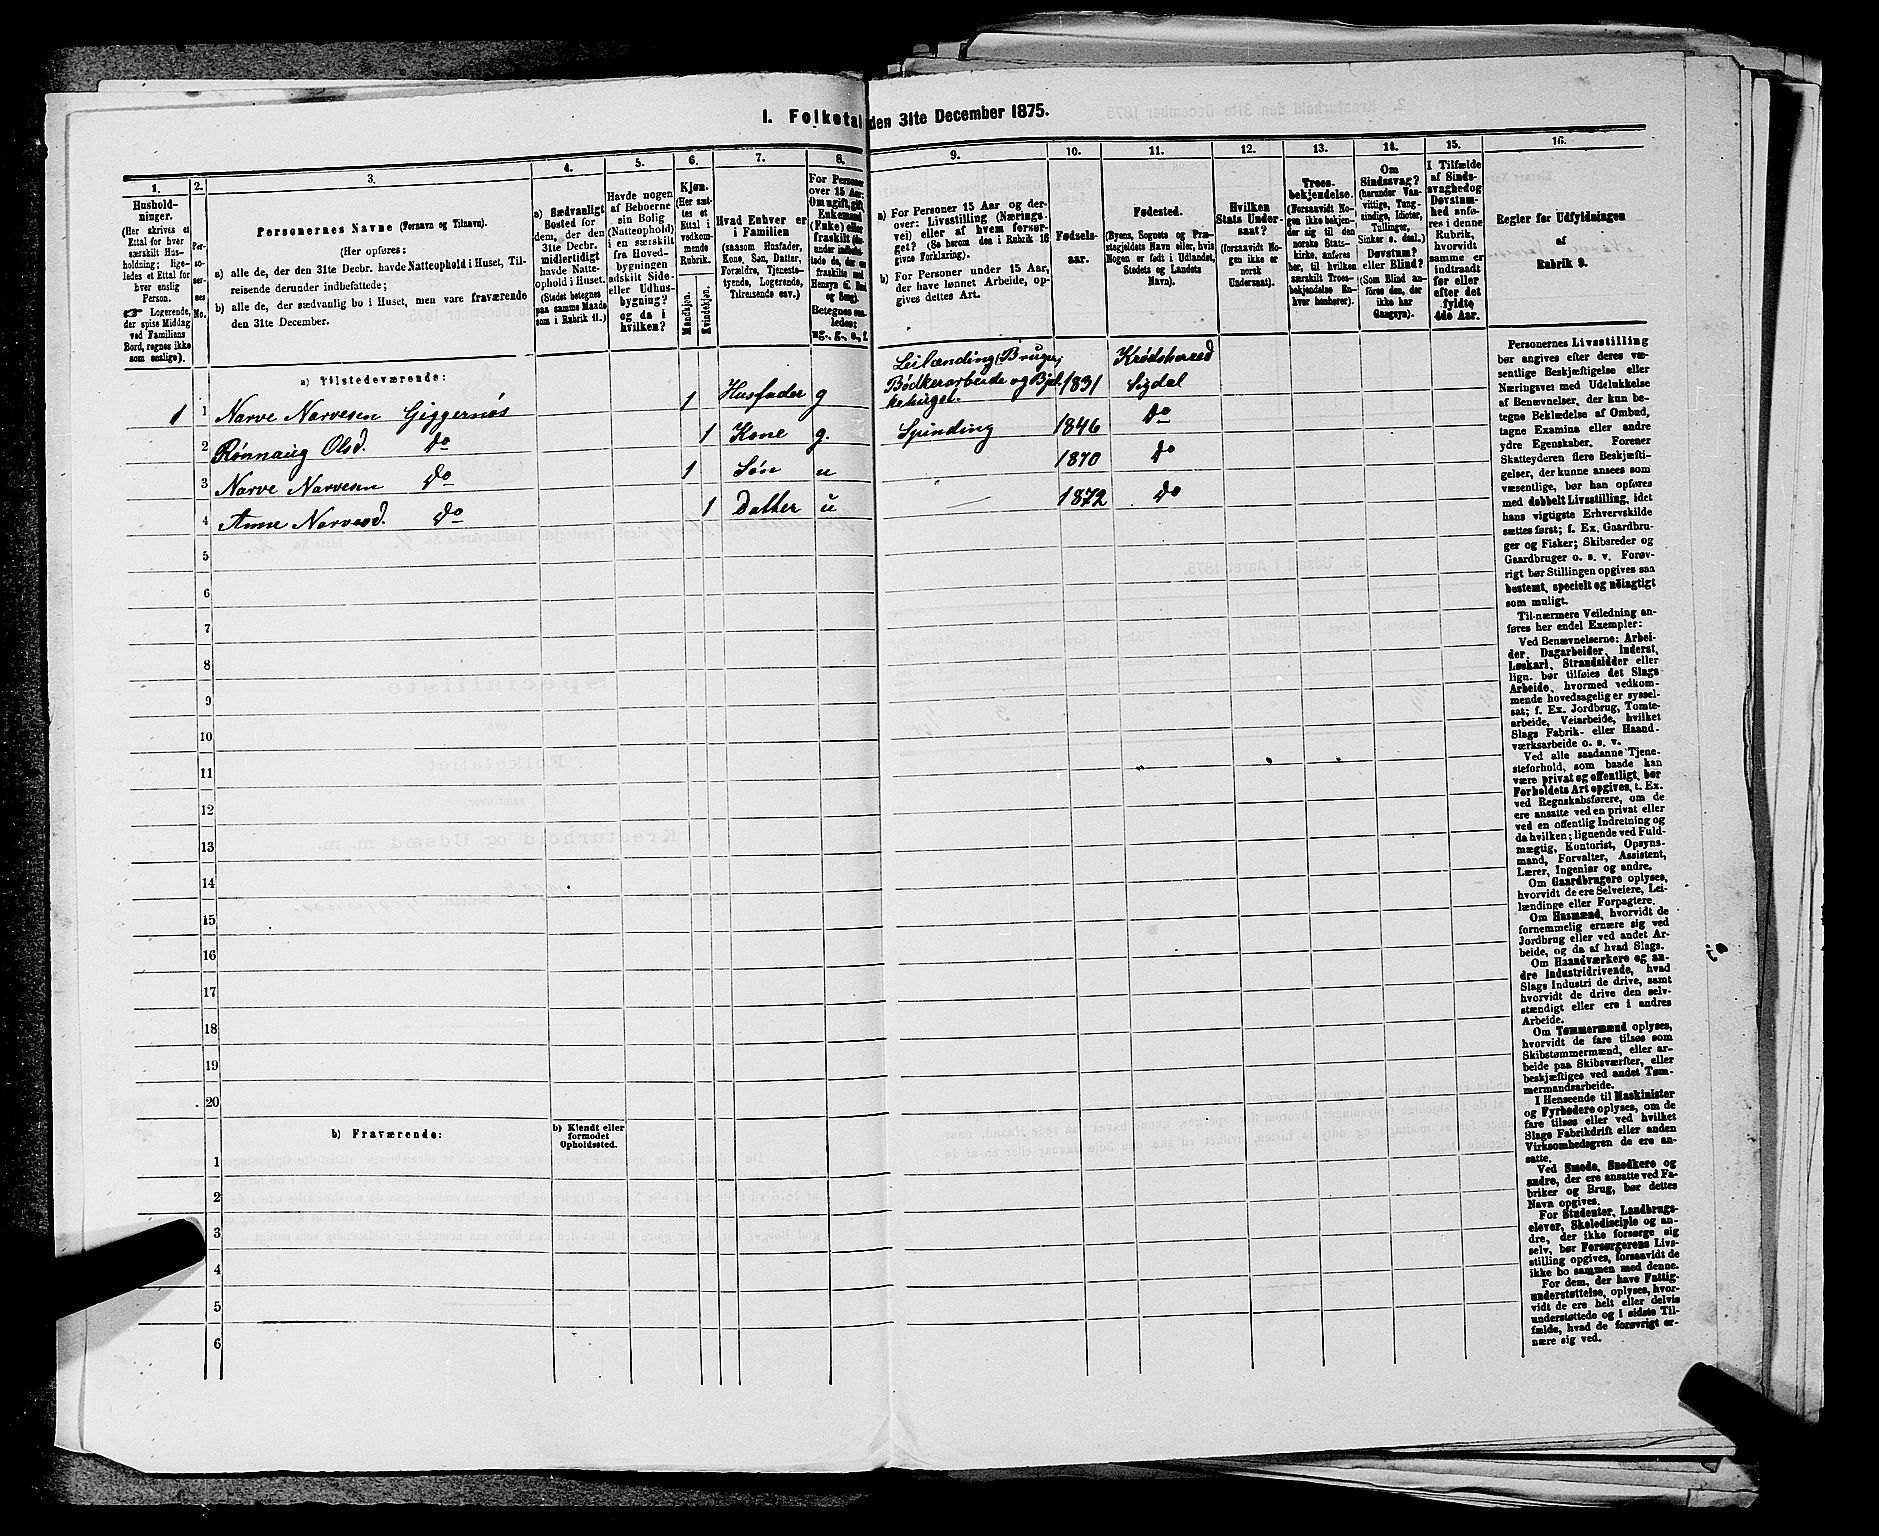 I. Folketal den 31te December 1875.
1. 2. 3. 4. 5. 6. 7. 8. 9. 10. 11. 12. 13. 14. 15. 16.
Hushold-
ninger.
(Her skrives et
Ettal for hver
særskilt Hus-
holdning; lige-
ledes et Ettal for
hver enslig
Person.
☞ Logerende,
der spise Middag
ved Familiens
Bord, regnes ikke
som enslige).
Per-
so-
ner-
nes
No.
Personernes Navne (Fornavn og Tilnavn).
(Her opføres:
a) alle de, der den 31te Decbr. havde Natteophold i Huset, Til-
reisende derunder indbefattede;
b) alle de, der sædvanlig bo i Huset, men vare fraværende
den 31te December.
a) Sædvanligt
Bosted for
dem, der den
31te Decbr.
midlertidigt
havde Natte-
ophold i Huset.
(Stedet betegnes
paa samme Maade
som i Rubrik 11.)
Havde nogen
af Beboerne
sin Bolig
(Natteophold)
i en særskilt
fra Hoved-
bygningen
adskilt Side-
eller Udhus-
bygning?
og da i
hvilken?
Kjøn.
(Her sæt-
tes et
Ettal i
vedkom-
mende
Rubrik.
Mandkjøn.
Kvindekjøn.
Hvad Enhver er
i Familien
(saasom Husfader,
Kone, Søn, Datter,
Forældre, Tjeneste-
tyende, Logerende,
Tilreisende osv.)
For Personer
over 15 Aar:
Om ugift, gift,
Enkemand
(Enke) eller
fraskilt
Betegnes saa-
ledes:
ug., g., e., f.
a) For Personer 15 Aar og der-
over: Livsstilling (Nærings-
vei) eller af hvem forsør-
get? (Se herom den i Rubrik 16
givne Forklaring).
b) For Personer under 15 Aar,
der have lønnet Arbeide, op-
gives dettes Art.
Fødsels-
aar.
Fødested.
(Byens, Sognets og Præ-
stegjeldets Navn eller, hvis
Nogen er født i Udlandet,
Stedets og Landets
Navn).
Hvilken
Stats Under-
saat?
(forsaavidt No-
gen ikke er
norsk
Undersaat).
Troes-
bekjendelse.
(Forsaavidt No-
gen ikke bekjen-
der sig til den
norske Stats-
kirke, anføres
her, til hvilken
særskilt Troes-
bekjendelse En-
hver henhører).
Om
Sindssvag?
(herunder Van-
vittige, Tung-
sindige, Idioter,
Tullinger,
Sinker o. desl.)
Døvstum?
eller Blind?
(Som Blind an-
føres den, der
ikke har
Gangsyn).
I Tilfælde
af Sinds-
svaghed og
Døvstum-
hed anfø-
res i denne
Rubrik,
hvorvidt
samme er
indtraadt
før eller
efter det
fyldte
4de Aar.
Regler for Udfyldningen
af
Rubrik 9.
a) Tilstedeværende:
1 1 Narve Narvesen Giggernøs 1 Husfader g Leilænding (Bruger, Bødkerarbeide og Bjel. kehuget. 1831 Krødshered Sigdal
2 Rønnaug Olsd. Do 1 Kone g. Spinding 1846 Do
3 Narve Narvesen Do 1 Søn u " 1870 Do
4 Anne Narvesd. Do 1 Datter u 1872 Do
5
6
7
8
9
10
11
12
13
14
15
16
17
18
19
20
b) Fraværende:
b) Kjendt eller
formodet
Opholdssted.
1
2
3
4
5
6
Personernes Livsstilling
bør angives efter deres væ-
sentlige Beskjæftigelse eller
Næringsvei med Udelukkelse
af Benævnelser, der kun be-
tegne Beklædelse af Ombud,
tagne Examina eller andre
ydre Egenskaber. Forener
Skatteyderen flere Beskjæfti-
gelser, der kunne ansees som
væsentlige, bør han opføres
med dobbelt Livsstilling, idet
hans vigtigste Erhvervskilde
sættes først; f. Ex. Gaardbru-
ger og Fisker; Skibsreder og
Gaardbruger o. s. v. Forøv-
rigt bør Stillingen opgives saa
bestemt, specielt og nöiagtigt
som muligt.
Til nærmere Veiledning an-
føres her endel Exempler:
Ved Benævnelserne: Arbei-
der, Dagarbeider, Inderst,
Løskarl, Strandsidder eller
lign. bør tilføies det Slags
Arbeide, hvormed vedkom-
mende hovedsagelig er syssel-
sat; f. Ex. Jordbrug, Tomte-
arbeide, Veiarbeide, hvilket
Slags Fabrik- eller Haand-
værksarbeide o. s. v.
Ved alle saadanne Tjene-
steforhold, som baade kan
være privat og offentligt, bør
Forholdets Art opgives, t. Ex.
ved Regnskabsførere, om de
ere ansatte ved en privat eller
ved en offentlig Indretning og
da hvilken; lignende ved Fuld-
mægtig, Kontorist, Opsyns-
mand, Forvalter, Assistent,
Lærer, Ingeniør og andre.
Om Gaardbrugere oplyses,
hvorvidt de ere Selveiere, Lei-
lændinge eller Forpagtere.
Om Husmænd, hvorvidt de
fornemmelig ernære sig ved
Jordbrug eller ved andet Ar-
beide, og da af hvad Slags.
Om Haandværkere og an-
dre Industridrivende, hvad
Slags Industri de drive, samt
hvorvidt de drive den selv-
stændigt eller ere i andres
Arbeide.
Om Tømmermænd oplyses,
hvorvidt de fare tilsøs som
Skibstømmermænd, eller ar-
beide paa Skibsværfter, eller
beskjæftiges ved andet Tøm-
mermandsarbeide.
I Henseende til Maskinister
og Fyrbødere oplyses, om de
fare tilsøs eller ved hvilket
Slags Fabrikdrift eller anden
Virksomhedsgren de ere an-
satte.
Ved Smede, Snedkere og
andre, der ere ansatte ved Fa-
briker og Brug, bør dettes
Navn opgives.
For Studenter, Landbrugs-
elever, Skoledisciple og an-
dre, der ikke forsørge sig
selv, bør Forsørgerens Livs-
stilling opgives, forsaavidt de
ikke bo sammen med denne.
For dem, der have Fattig-
understøttelse, oplyses, hvor-
vidt de ere helt eller delvis
understøttede og i sidste Til-
fælde, hvad de forøvrigt er-
nære sig ved.